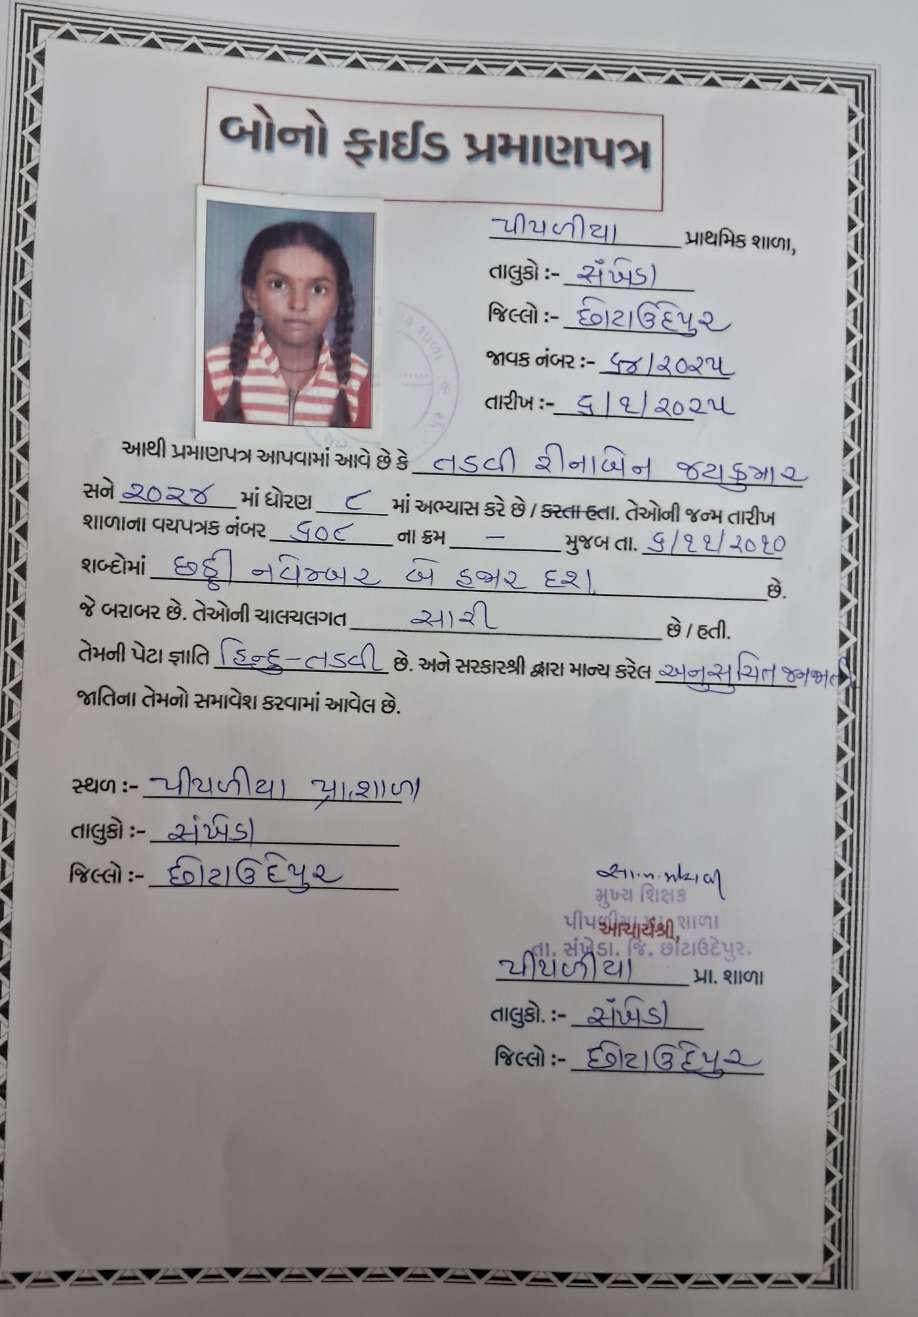 બોનો ફાઈડ પ્રમાણપત્ર
પીપળીયા પ્રાથમિક શાળા,
તાલુકો :- સંખેડા
જિલ્લો :- છોટાઉદેપુર
જાવક નંબર :- ૬૪/૨૦૨૫
તારીખ :- ૬/૧/૨૦૨૫
આથી પ્રમાણપત્ર આપવામાં આવે છે કે તડવી રીનાબેન જયકુમાર
સને ૨૦૨૪ માં ધોરણ ૮ માં અભ્યાસ કરે છે / કરતા હતા. તેઓની જન્મ તારીખ
શાળાના વયપત્રક નંબર ૬૦૮ ના ક્રમ - મુજબ તા. ૬/૧૧/૨૦૧૦
શબ્દોમાં છઠ્ઠી નવેમ્બર બે હજાર દશ છે.
જે બરાબર છે. તેઓની ચાલચલગત સારી છે / હતી.
તેમની પેટા જ્ઞાતિ હિન્દુ-તડવી છે. અને સરકારશ્રી દ્વારા માન્ય કરેલ અનુસુચિત જનજાતિ
જાતિના તેમનો સમાવેશ કરવામાં આવેલ છે.
સ્થળ :- પીપળીયા પ્રા.શાળા
તાલુકો :- સંખેડા
જિલ્લો :- છોટાઉદેપુર
મુખ્ય શિક્ષક
આચાર્યશ્રી,
શાળા
તા. સંખેડા. જિ. છોટાઉદેપુર.
પીપળીયા પ્રા. શાળા
તાલુકો. :- સંખેડા
જિલ્લો :- છોટાઉદેપુર